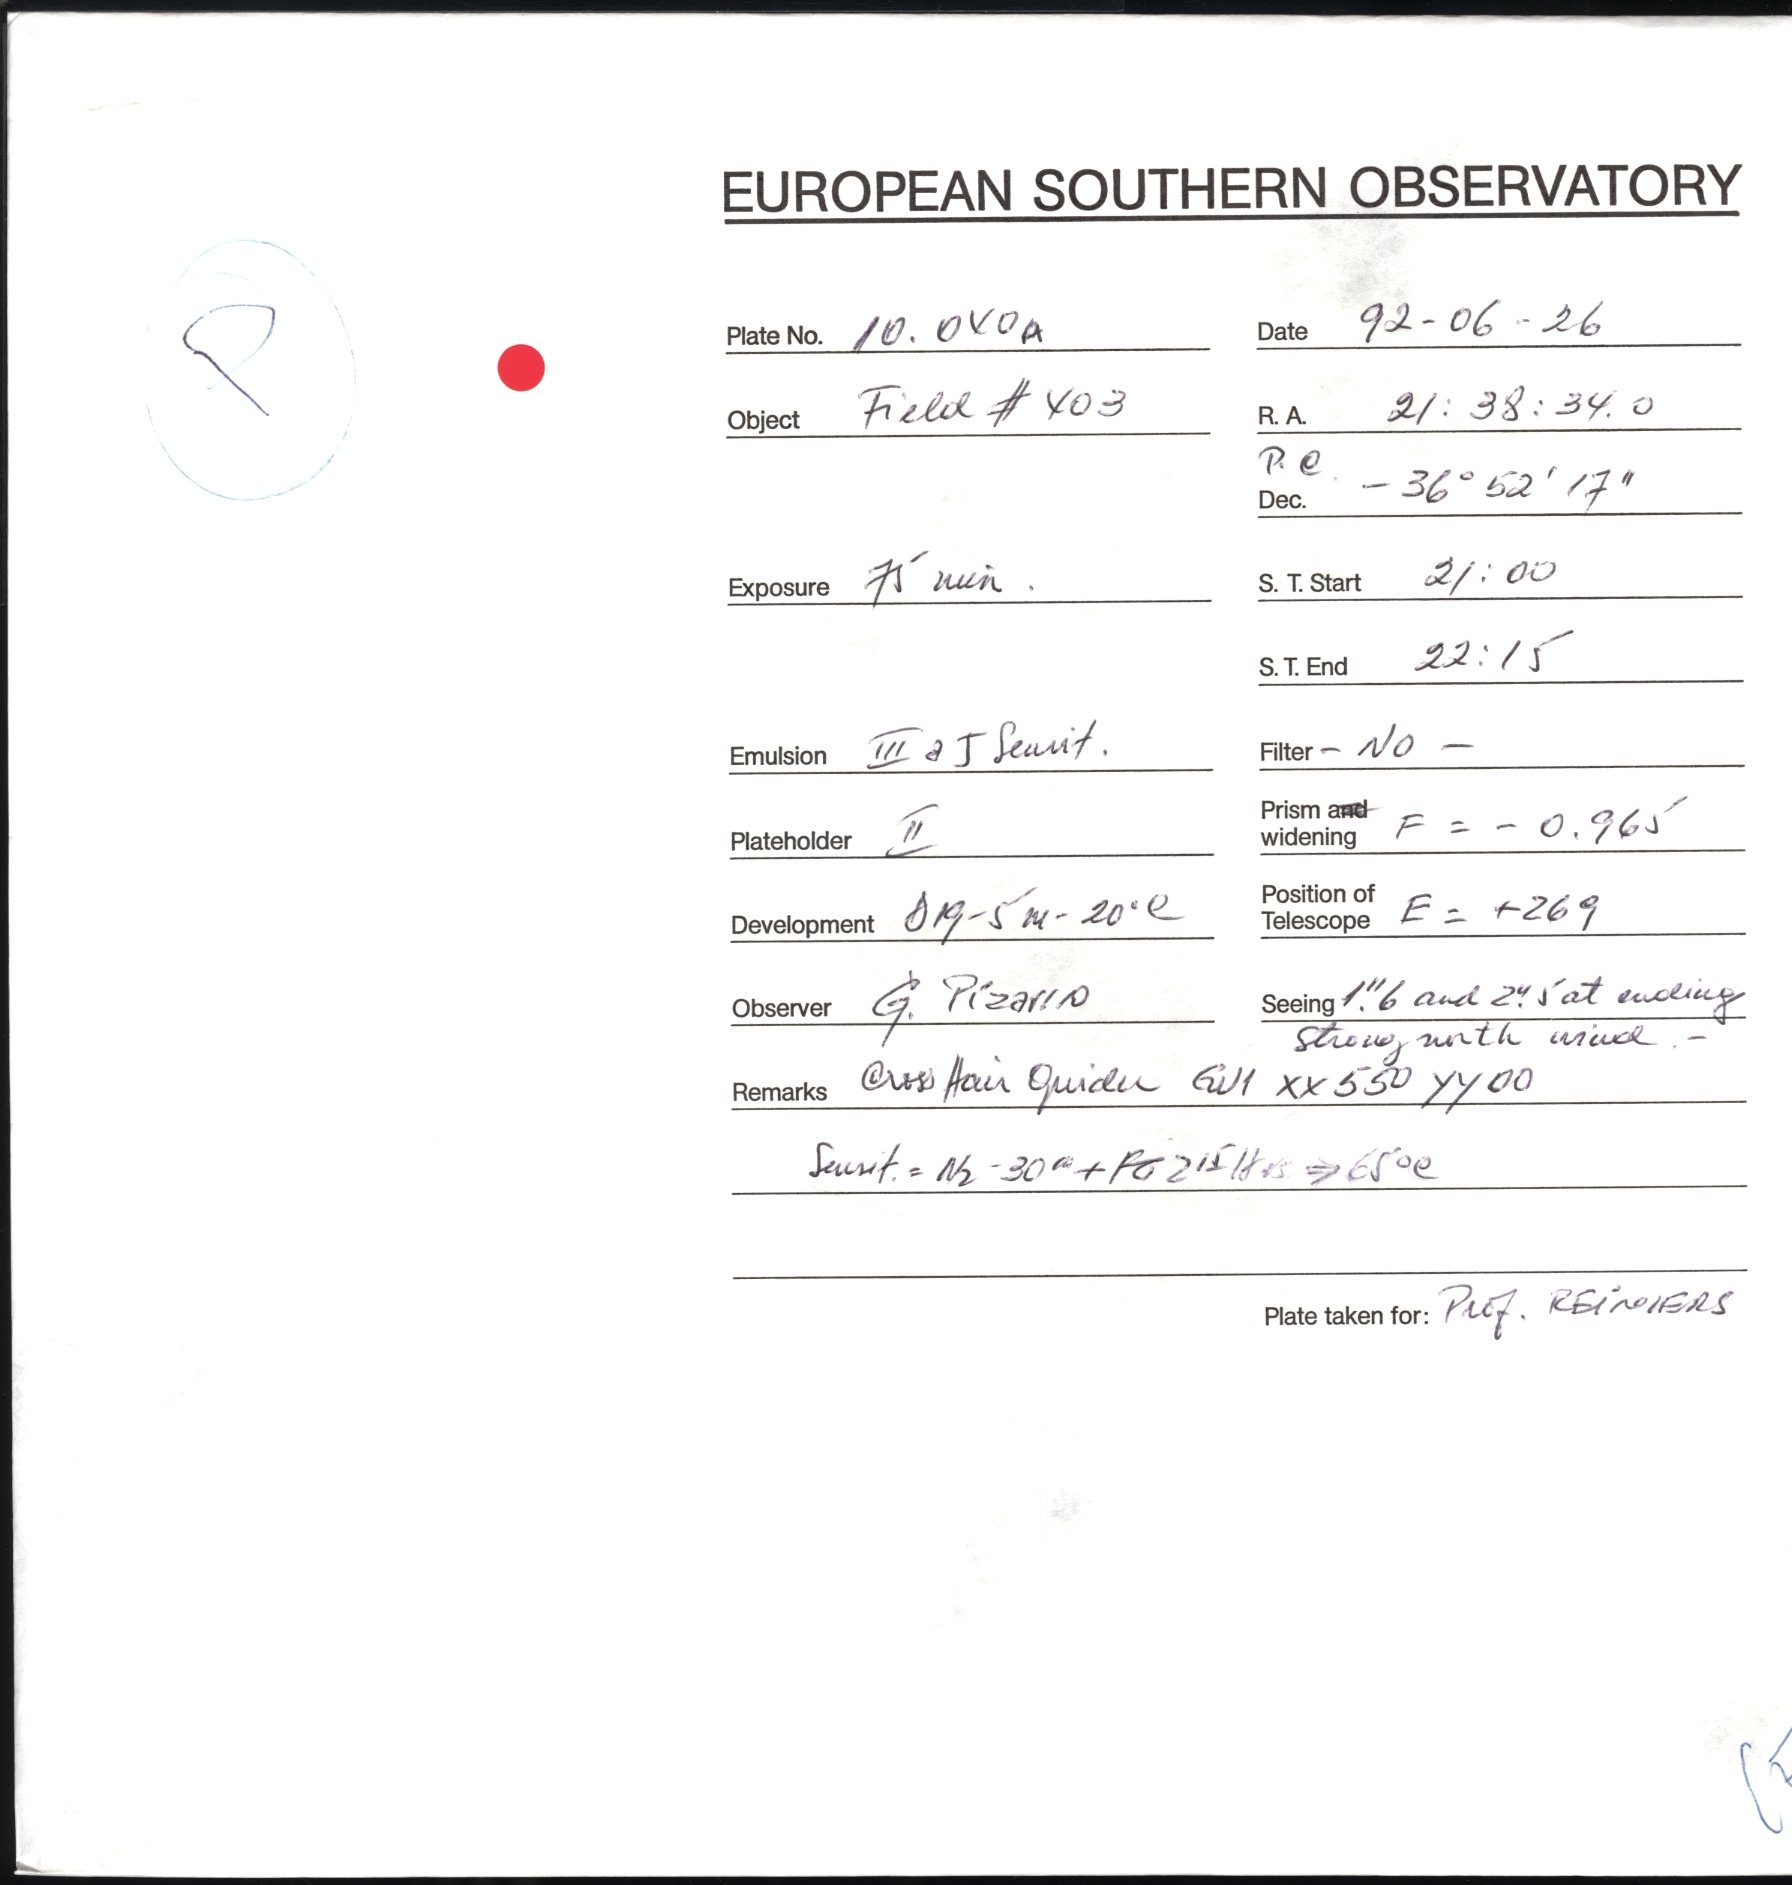 EUROPEAN SOUTHERN OBSERVATORY
P
Plate No. 10.040A Date 92-06-26
Object Field # 403 R. A. 21:38:34.0
P.C.
Dec. - 36° 52' 17"
Exposure 75 min. S. T. Start 21:00
S. T. End 22:15
Emulsion III a J Sensit. Filter - NO -
Prism and
Plateholder II widening F = - 0.965
Position of
Development D19-5m-20°C Telescope E = +269
Observer G. Pizarro Seeing 1."6 and 2".5 at ending
strong north wind.-
Remarks Cross Hair Guider GW1 XX550 YY00
Sensit. = N2 -30m + FG 215 Hrs ⇒ 65°C
Plate taken for: Prof. REiMERS